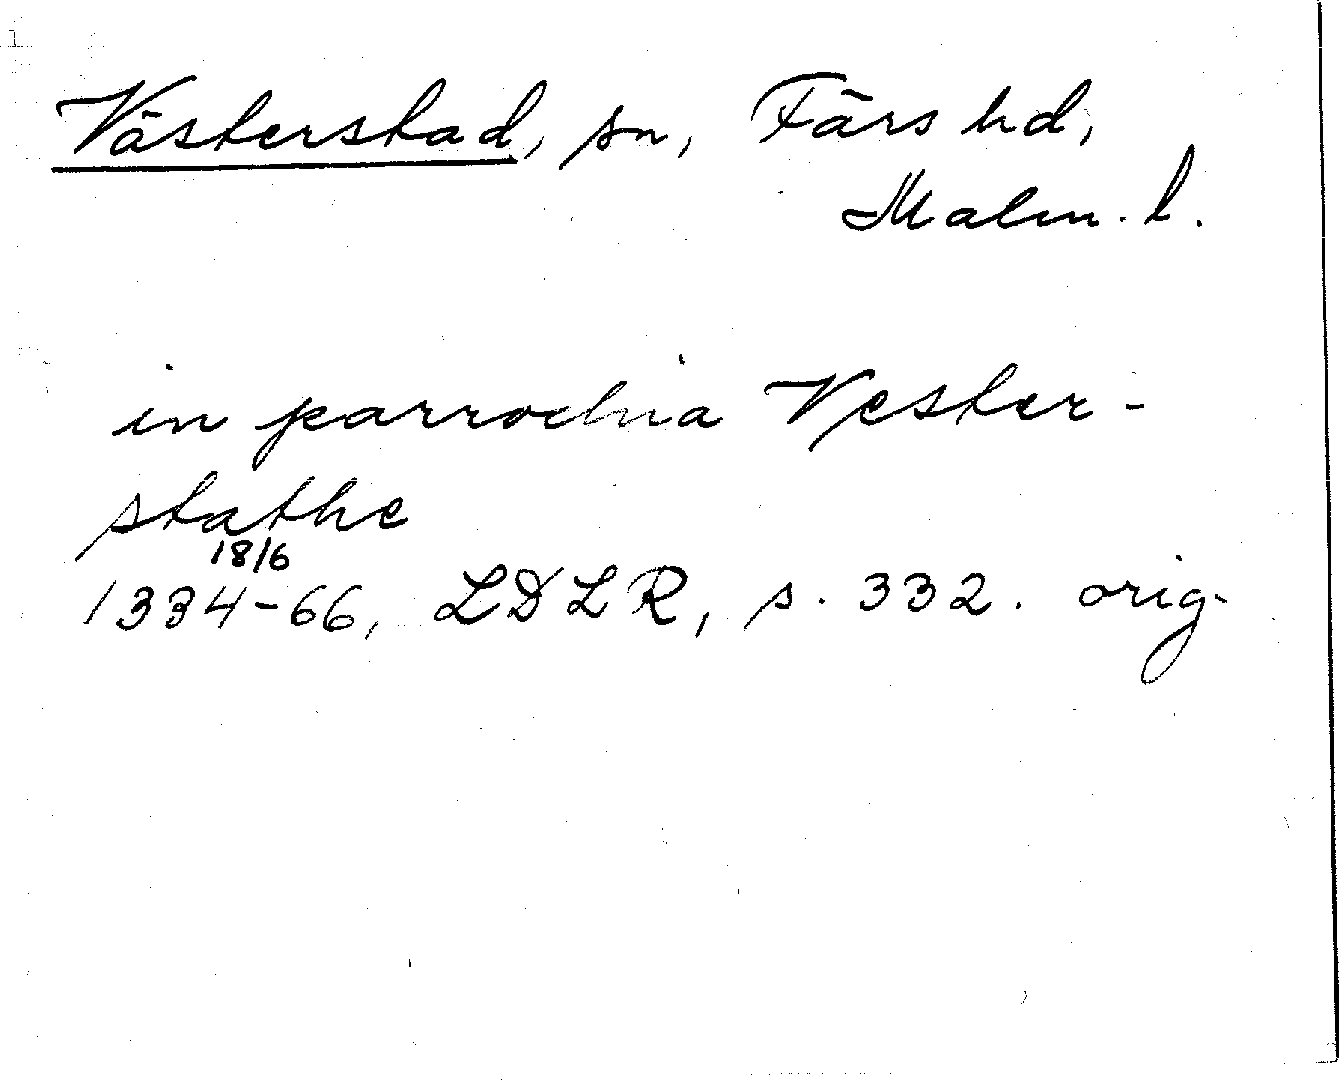 Västerstad, sn, Färs hd,
Malm. l.
in parrochia Vester-
stathe
18/6
1334-66, LDLR, s. 332. orig.